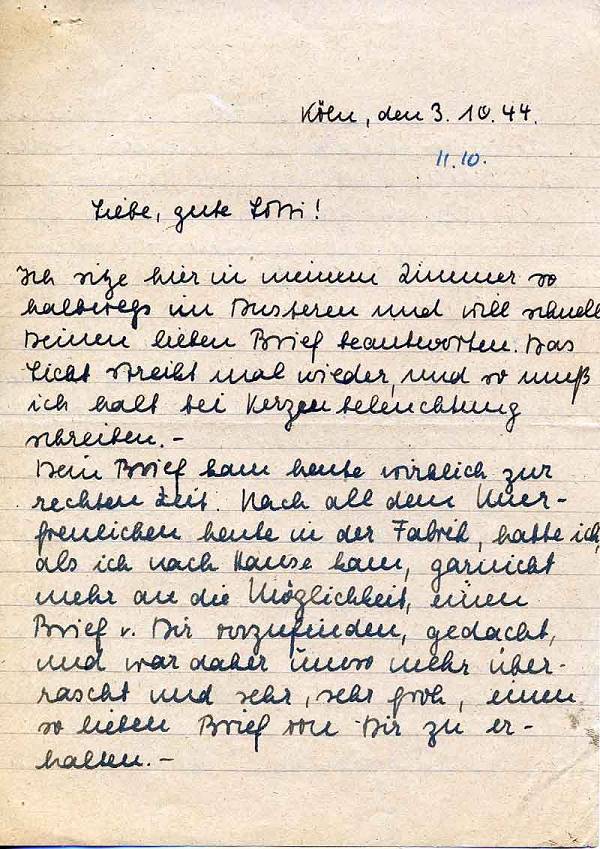 Köln, den 3. 10. 44.
11.10.
Liebe, gute Lotti!
Ich sitze hier in meinem Zimmer so
halbwegs im Dusteren und will schnell
Deinen lieben Brief beantworten. Das
Licht streikt mal wieder, und so muß
ich halt bei Kerzenbeleuchtung
schreiben. –
Dein Brief kam heute wirklich zur
rechten Zeit. Nach all dem Uner-
freulichen heute in der Fabrik, hatte ich,
als ich nach Hause kam, garnicht
mehr an die Möglichkeit, einen
Brief v. Dir vorzufinden, gedacht,
und war daher umso mehr über-
rascht und sehr, sehr froh, einen
so lieben Brief von Dir zu er-
halten. –